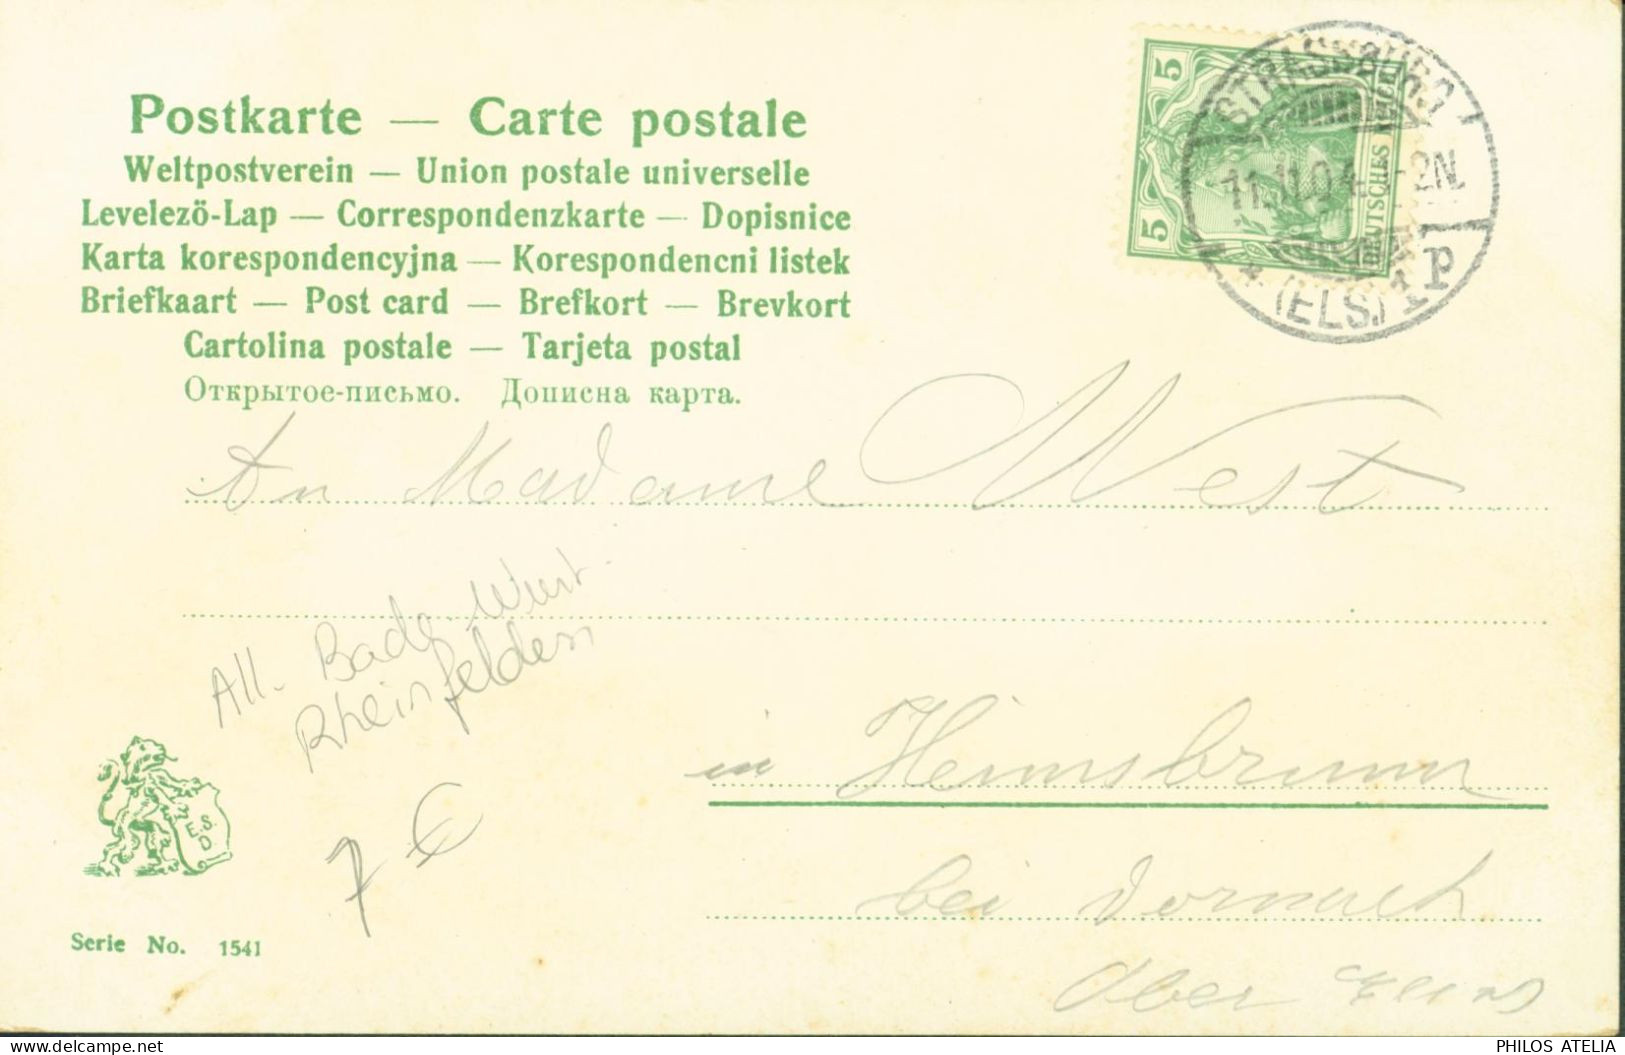 Postkarte — Carte postale
Weltpostverein — Union postale universelle
Levelezö-Lap — Correspondenzkarte — Dopisnice
Karta korespondencyjna — Korespondencni listek
Briefkaart — Post card — Brefkort — Brevkort
Cartolina postale — Tarjeta postal
Открытое-письмо. Дописна карта.
5
5
DEUTSCHES
STRASSBURG
11.11.04 -2N.
* (ELS.) 1P
An Madame West
All. Bade Wurt.
Rheinfelden
in Heimsbrunn
7 €
bei Dornach
Ober
E.S.
D
Serie No. 1541
PHILOS ATELIA